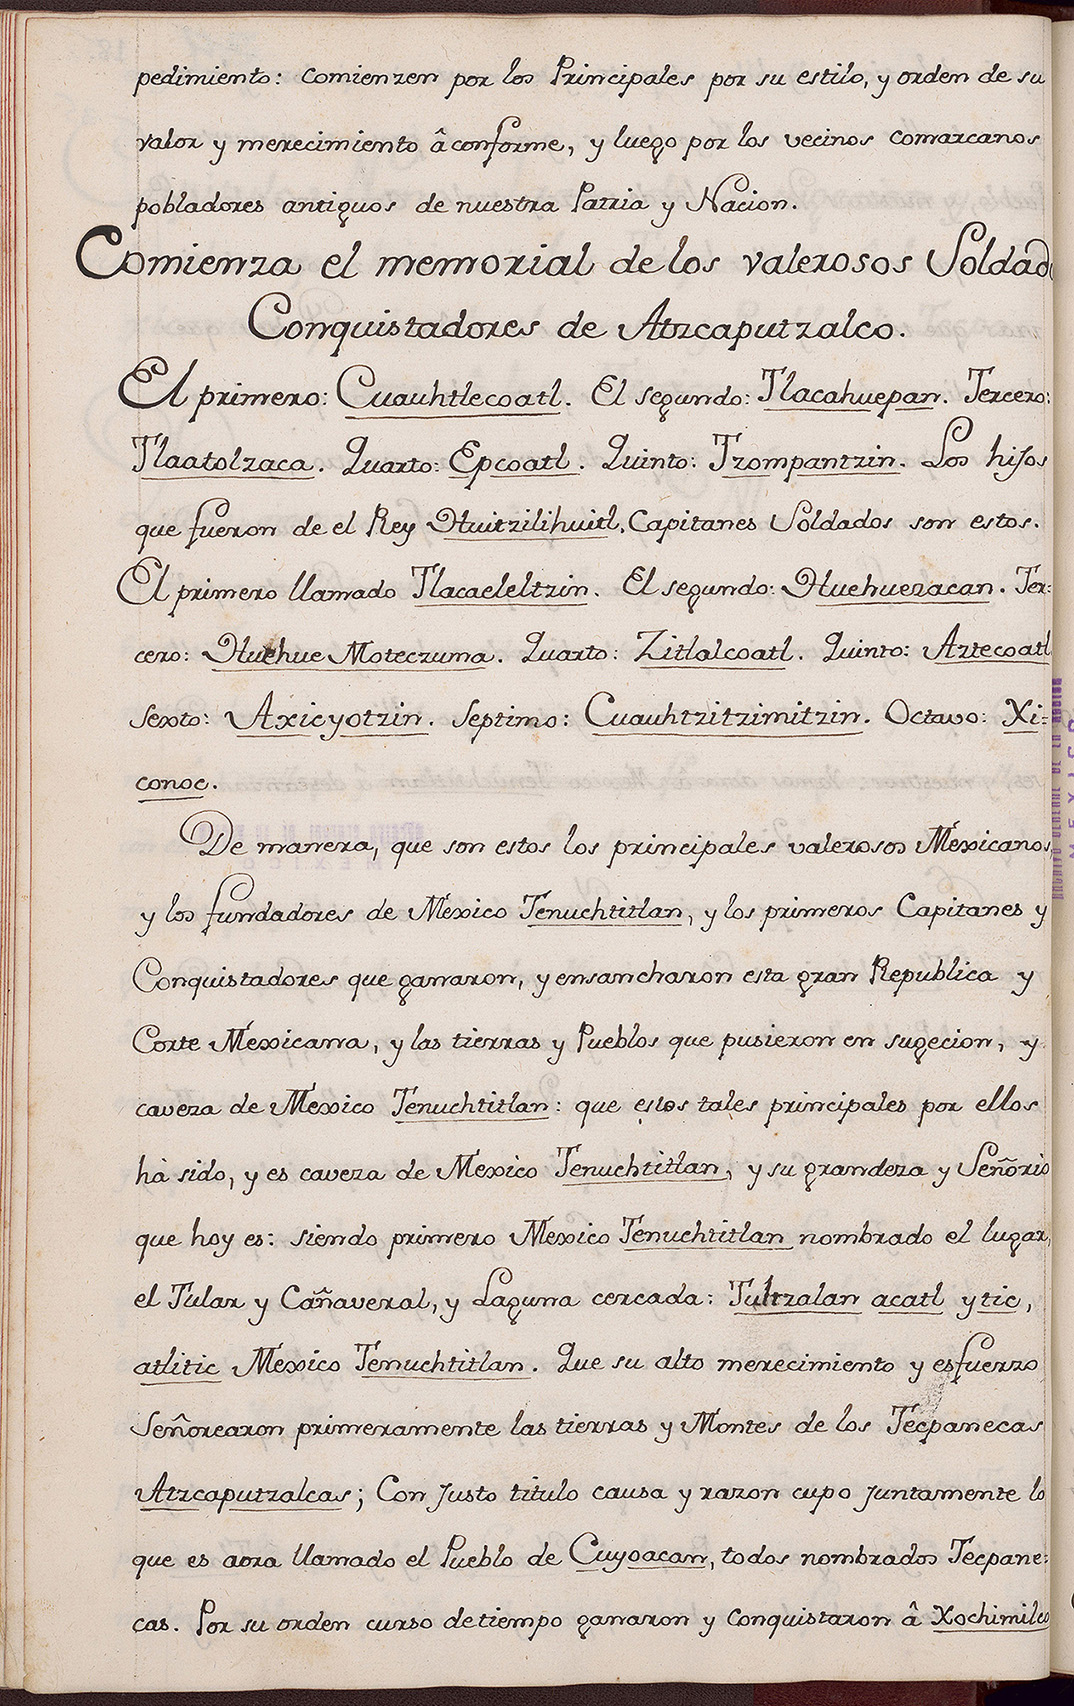 pedimiento: comienzen por los Principales por su estilo, y orden de su
valor y merecimiento â conforme, y luego por los vecinos comarcanos
pobladores antiguos de nuestra Patria y Nacion.
Comienza el memorial de los valerosos Soldad
Conquistadores de Atzcaputzalco.
El primero: Cuauhtlecoatl. El segundo: Tlacahuepan. Tercero:
Tlaatolzaca. Quarto: Epcoatl. Quinto: Tzompantzin. Los hijos
que fueron de el Rey Huitzilihuitl, Capitanes Soldados son estos.
El primero llamado Tlacaeleltzin. El segundo: Huehuezacan. Ter:
cero: Huehue Moteczuma. Quarto: Zitlalcoatl. Quinto: Aztecoatl
sexto: Axicyotzin. Septimo: Cuauhtzitzimitzin. Octavo: Xi=
conoc.
De manera, que son estos los principales valerosos Mexicanos,
y los fundadores de Mexico Tenuchtitlan, y los primeros Capitanes y
Conquistadores que ganaron, y ensancharon esta gran Republica y
Corte Mexicana, y las tierras y Pueblos que pusieron en sugecion, y
caveza de Mexico Tenuchtitlan: que estos tales principales por ellos
hà sido, y es caveza de Mexico Tenuchtitlan, y su grandeza y Señorio
que hoy es: siendo primero Mexico Tenuchtitlan nombrado el lugar,
el Tular y Cañaveral, y Laguna cercada: Tultzalan acatl ytic,
atlitic Mexico Tenuchtitlan. Que su alto merecimiento y esfuerzo
Señorearon primeramente las tierras y Montes de los Tecpanecas
Atzcaputzalcas; Con justo titulo causa y razon cupo juntamente lo
que es aora llamado el Pueblo de Cuyoacan, todos nombrados Tecpane:
cas. Por su orden curso de tiempo ganaron y conquistaron â Xochimilco
ARCHIVO GENERAL DE LA NACION
MEXICO